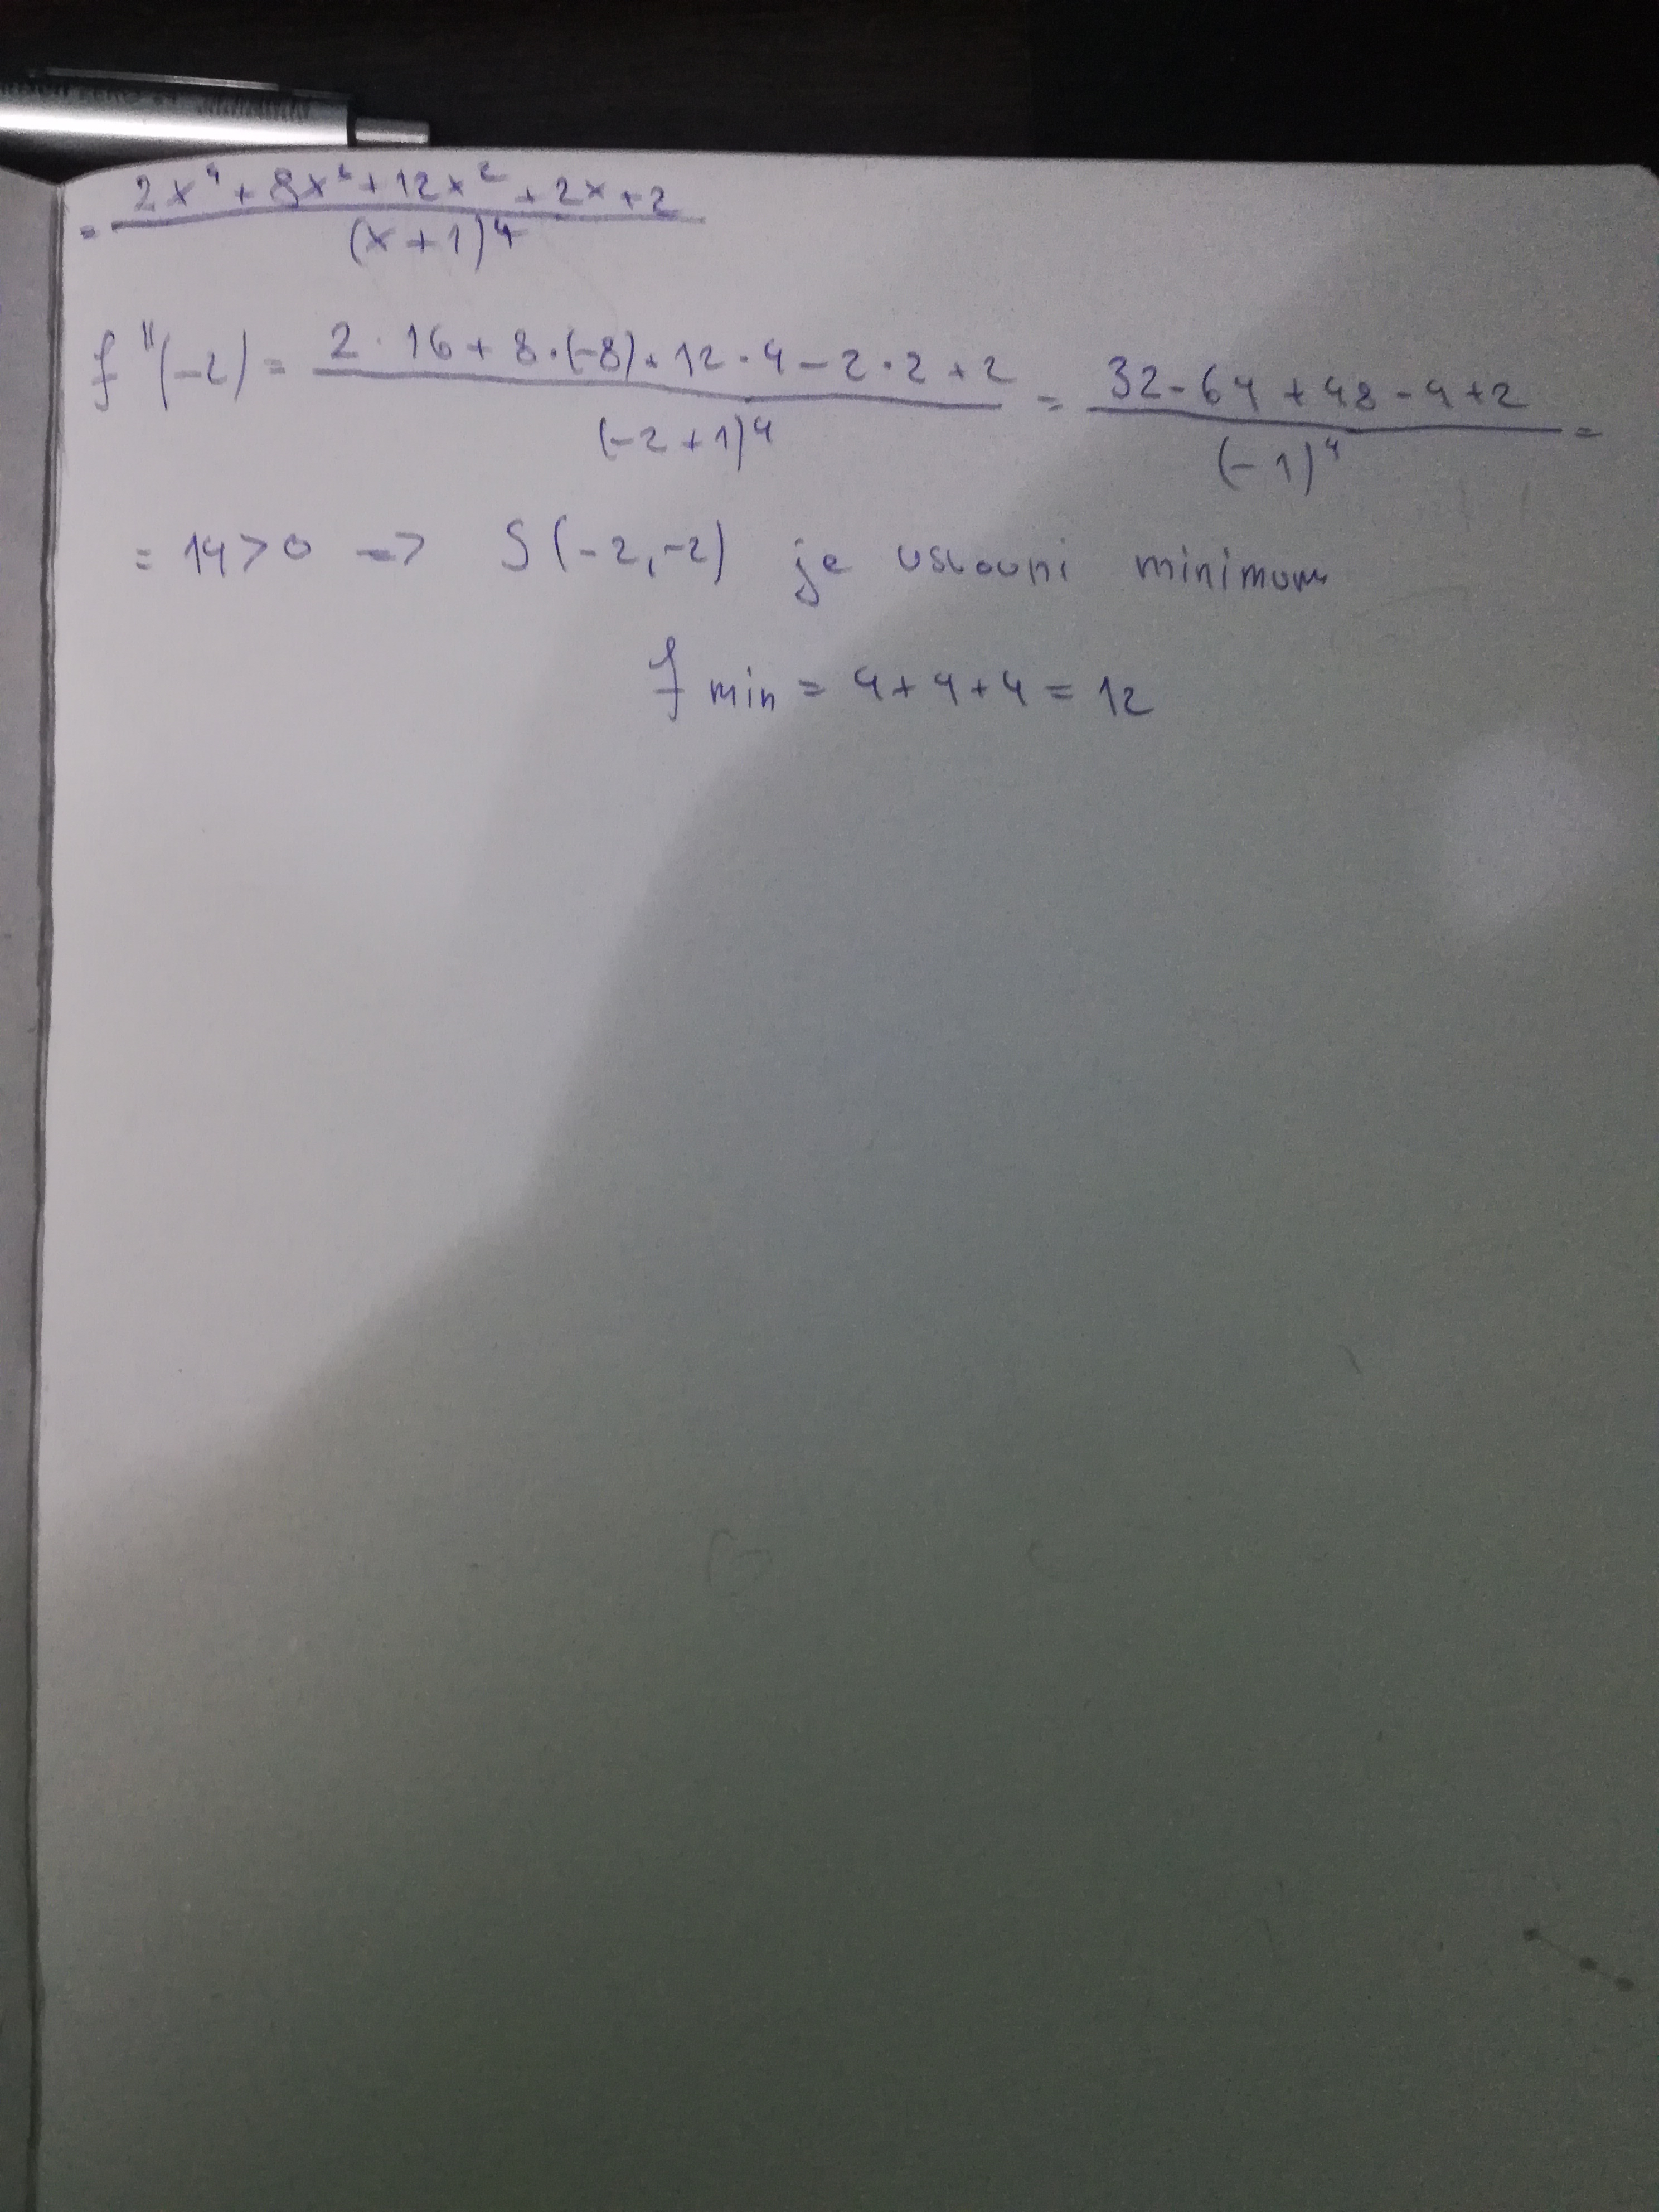 = (2x⁴ + 8x³ + 12x² + 2x + 2) / (x + 1)⁴
f''(-2) = (2 · 16 + 8 · (-8) + 12 · 4 - 2 · 2 + 2) / (-2 + 1)⁴ = (32 - 64 + 48 - 4 + 2) / (-1)⁴ =
= 14 > 0 => S(-2, -2) je uslovni minimum
f min = 4 + 4 + 4 = 12